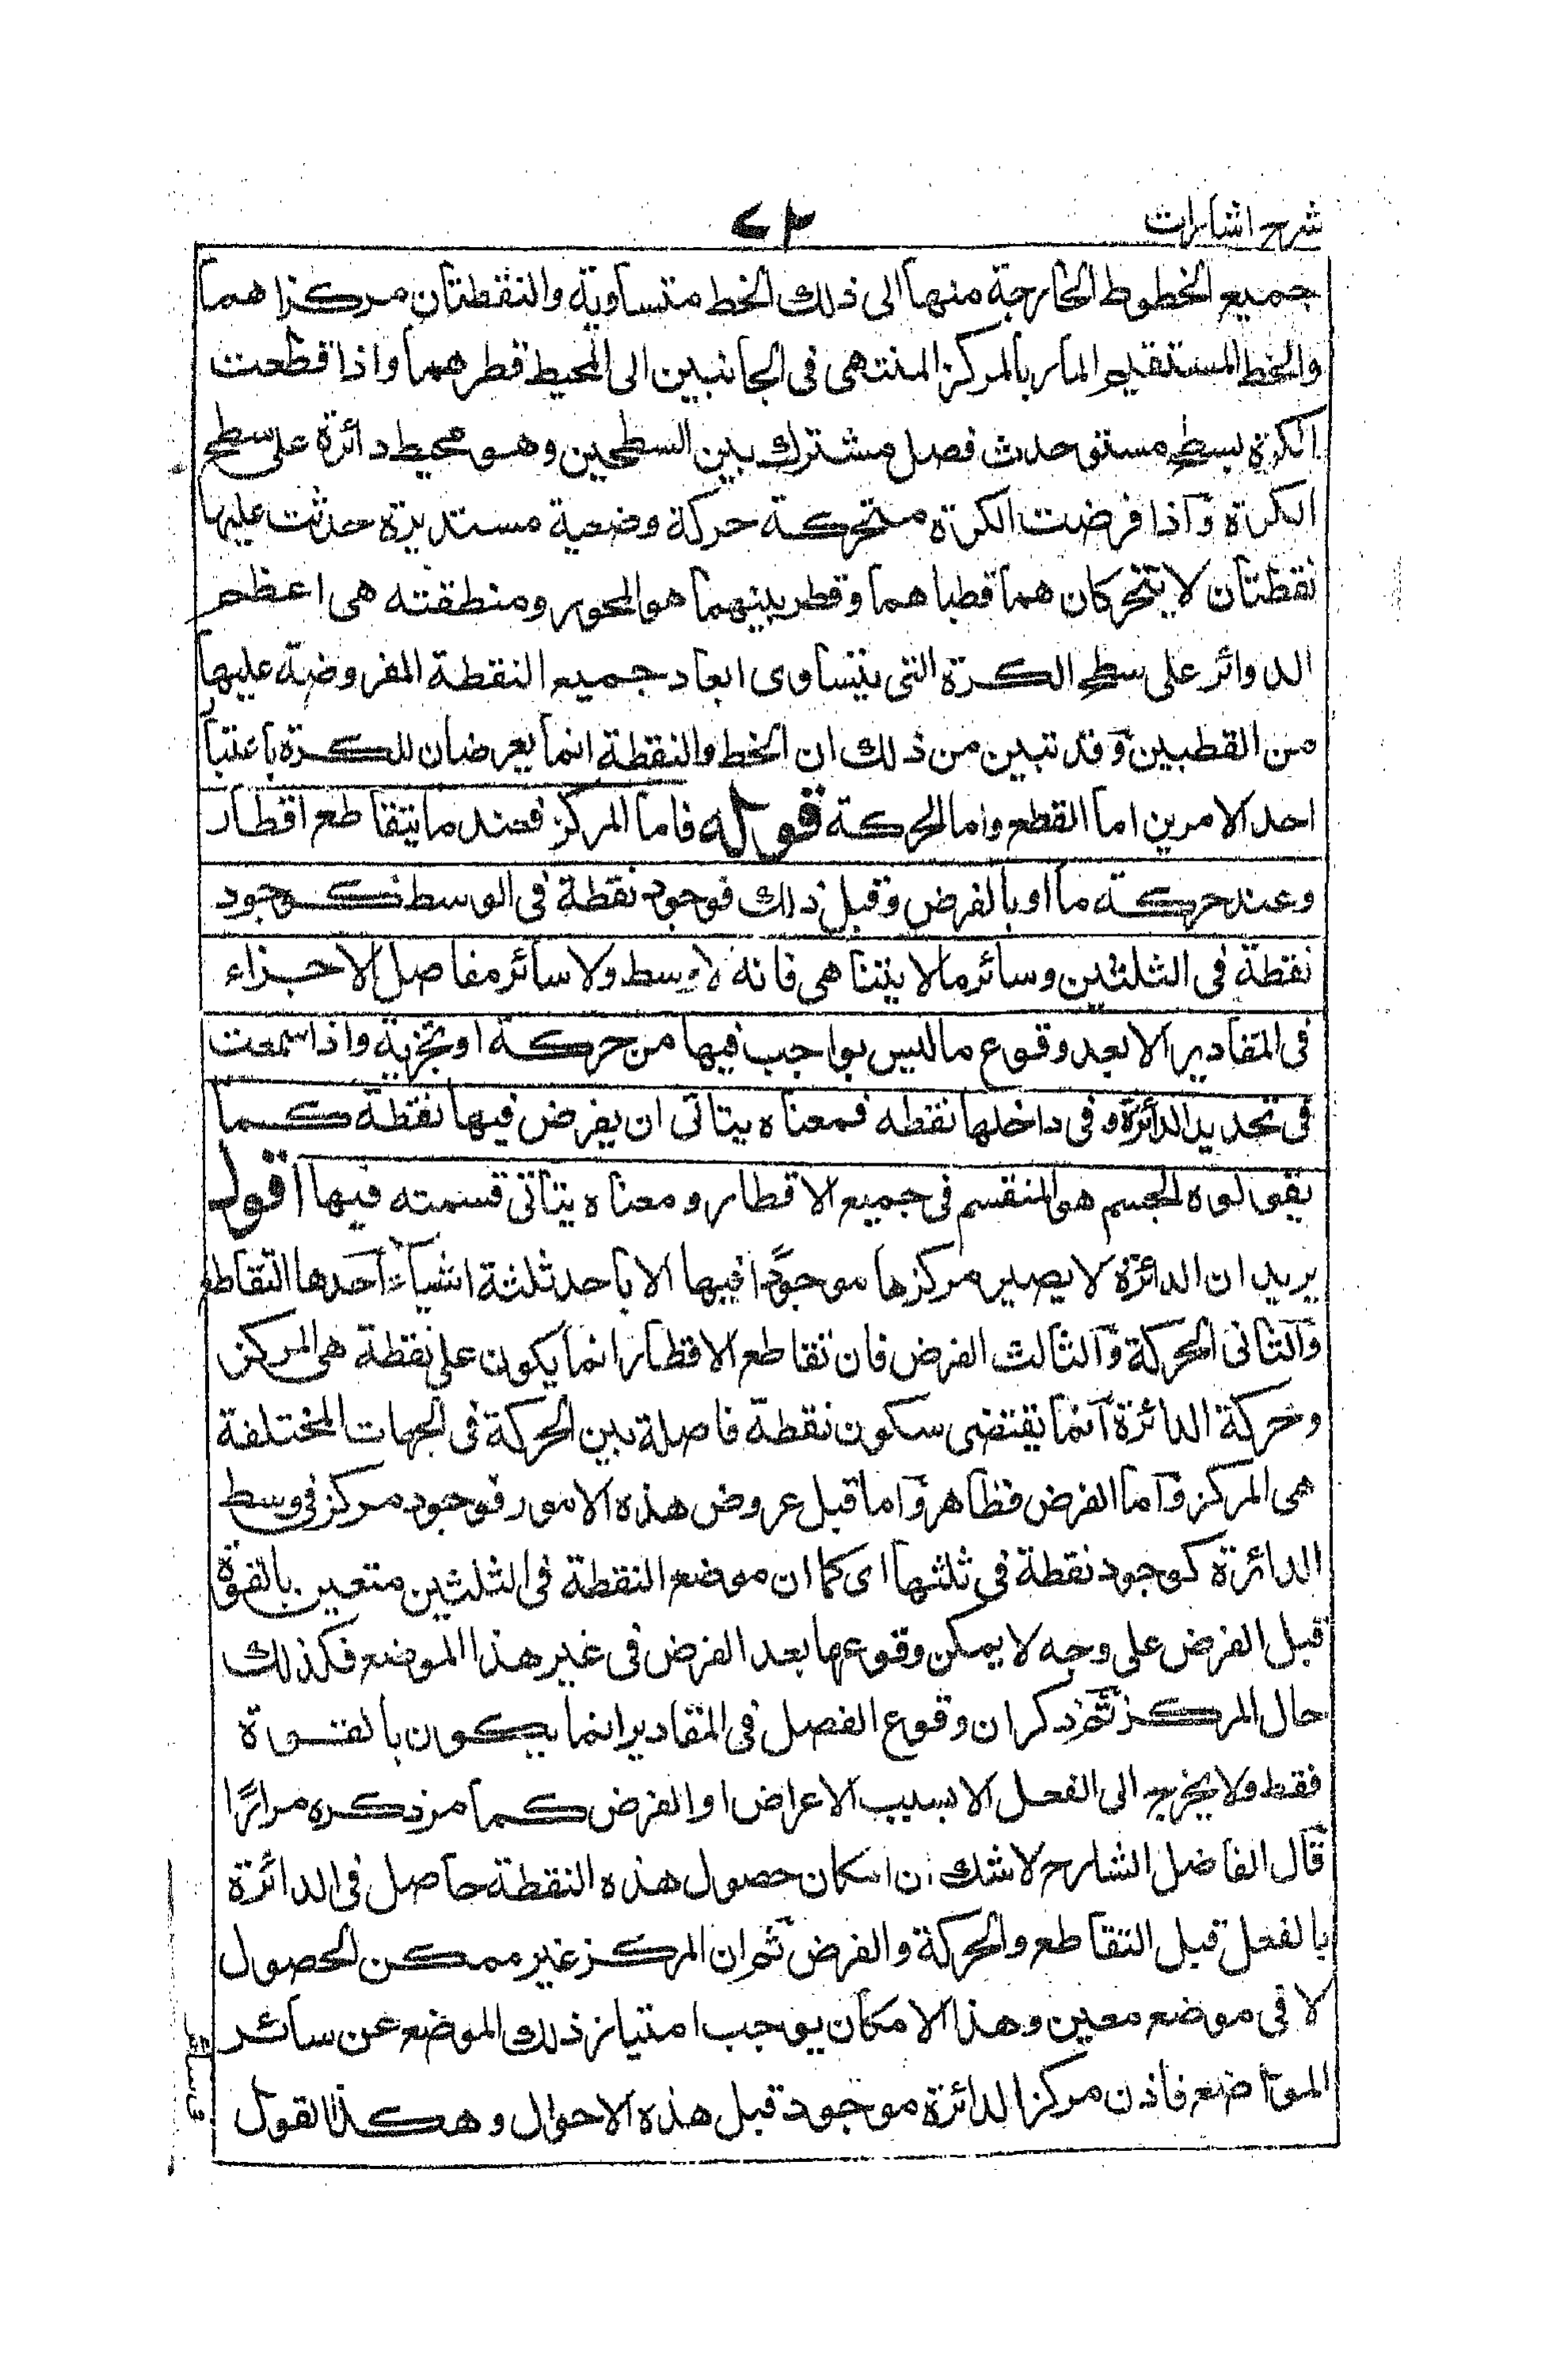 شرح اشارات
جميع الخطوط الخارجة منها الى ذلك الخط متساوية والنقطتان مركزاهما
والخط المستقيم المار بالمركز المنتهى فى الجانبين الى المحيط قطرهما واذا قطعت
الكرة بسطح مستو حدث فصل مشترك بين السطحين وهو محيط دائرة على سطح
الكرة وآذا فرضت الكرة متحركة حركة وضعية مستديرة حدثت عليها
نقطتان لا يتحركان هما قطباهما وقطر بينهما هو المحور ومنطقته هى اعظم
الدوائر على سطح الكرة التى يتساوى ابعاد جميع النقطة المفروضة عليها
من القطبين وقد تبين من ذلك ان الخط والنقطة انما يعرضان للكرة باعتبار
احد الامرين اما القطع واما الحركة قوله فاما المركز فعند ما يتقاطع اقطار
وعند حركة ما او بالفرض وقبل ذلك فوجود نقطة فى الوسط كوجود
نقطة فى الثلثين وسائر ما لا يتناهى فانه لا وسط ولا سائر مفاصل الاجزاء
فى المقادير الا بعد وقوع ما ليس بواجب فيها من حركة او تجزية واذا سمعت
فى تحديد الدائرة وفى داخلها نقطه فمعناه يتاتى ان يفرض فيها نقطة كما
يقولوه الجسم هو المنقسم فى جميع الاقطار ومعناه يتاتى قسمته فيها اقول
يريد ان الدائرة لا يصير مركزها موجودًا فيها الا باحد ثلثة اشياء آحدها التقاطع
وآلثانى الحركة وآلثالث الفرض فان تقاطع الاقطار انما يكون على نقطة هى المركز
وحركة الدائرة آنما يقتضى سكون نقطة فاصلة بين الحركة فى الجهات المختلفة
هى المركز وآما الفرض فظاهر وآما قبل عروض هذه الامور فوجود مركز فى وسط
الدائرة كوجود نقطة فى ثلثها اى كما ان موضع النقطة فى الثلثين متعين بالقوة
قبل الفرض على وجه لا يمكن وقوعها بعد الفرض فى غير هذا الموضع فكذلك
حال المركز ثم ذكر ان وقوع الفصل فى المقادير انما يكون بالقوة
فقط ولا يخرج الى الفعل الا بسبب الاعراض او الفرض كما مر ذكره مرارًا
قآل الفاضل الشارح لا شك ان امكان حصول هذه النقطة حاصل فى الدائرة
بالفعل قبل التقاطع والحركة والفرض ثم ان المركز غير ممكن الحصول
لا فى موضع معين وهذا الامكان يوجب امتياز ذلك الموضع عن سائر
المواضع فاذن مركز الدائرة موجود قبل هذه الاحوال وهكذا القول